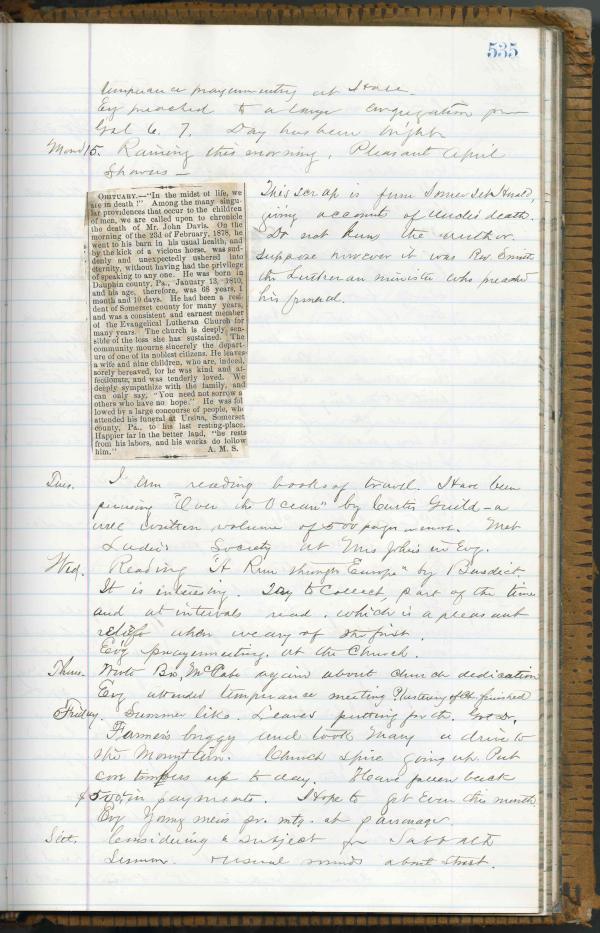 535
temperance prayermeeting at 3 o'clk.
Evg preached to a large congregation from
Gal 6. 7. Day has been bright.
Mond 15. Raining this morning. Pleasant April
Showers —
OBITUARY.—"In the midst of life, we
are in death!" Among the many singu-
lar providences that occur to the children
of men, we are called upon to chronicle
the death of Mr. John Davis. On the
morning of the 23d of February, 1878, he
went to his barn in his usual health, and
by the kick of a vicious horse, was sud-
denly and unexpectedly ushered into
eternity, without having had the privilege
of speaking to any one. He was born in
Dauphin county, Pa., January 13, 1810,
and his age, therefore, was 68 years, 1
month and 10 days. He had been a resi-
dent of Somerset county for many years,
and was a consistent and earnest member
of the Evangelical Lutheran Church for
many years. The church is deeply sen-
sible of the loss she has sustained. The
community mourns sincerely the depart-
ure of one of its noblest citizens. He leaves
a wife and nine children, who are, indeed,
sorely bereaved, for he was kind and af-
fectionate, and was tenderly loved. We
deeply sympathize with the family, and
can only say, "You need not sorrow as
others who have no hope." He was fol
lowed by a large concourse of people, who
attended his funeral at Ursina, Somerset
county, Pa., to his last resting-place.
Happier far in the better land, "he rests
from his labors, and his works do follow
him." A. M. S.
This scrap is from Somerset Herald,
giving account of Uncle's death.
Do not know the author.
Suppose however it was Rev.
the Lutheran minister who preached
his funeral.
Tues. I am reading books of travel. Have been
perusing "Over the Ocean" by Curtis Guild — a
well written volume of 500 pages or more. Met
Ladies Society at Mrs in Evg.
Wed. Reading "A Run through Europe" by Benedict.
It is interesting. Try to Collect, part of the time
and at intervals read, which is a pleasant
relief when weary of the first.
Ev'g prayermeeting at the Church.
Thurs. Wrote Bro. McCabe again about church dedication
Ev'g attended temperance meeting. Plastering of Ch. finished
Friday. Summer like. Leaves putting forth. Got
Farmer's buggy and took Mary a drive to
the Mountain. Church spire going up. Put
up to day. Have fallen back
$500 in payments. Hope to get Even this month.
Evg Young men's pr. mtg. at parsonage.
Sat. Considering a subject for Sabbath
Sermon. usual rounds about Street.